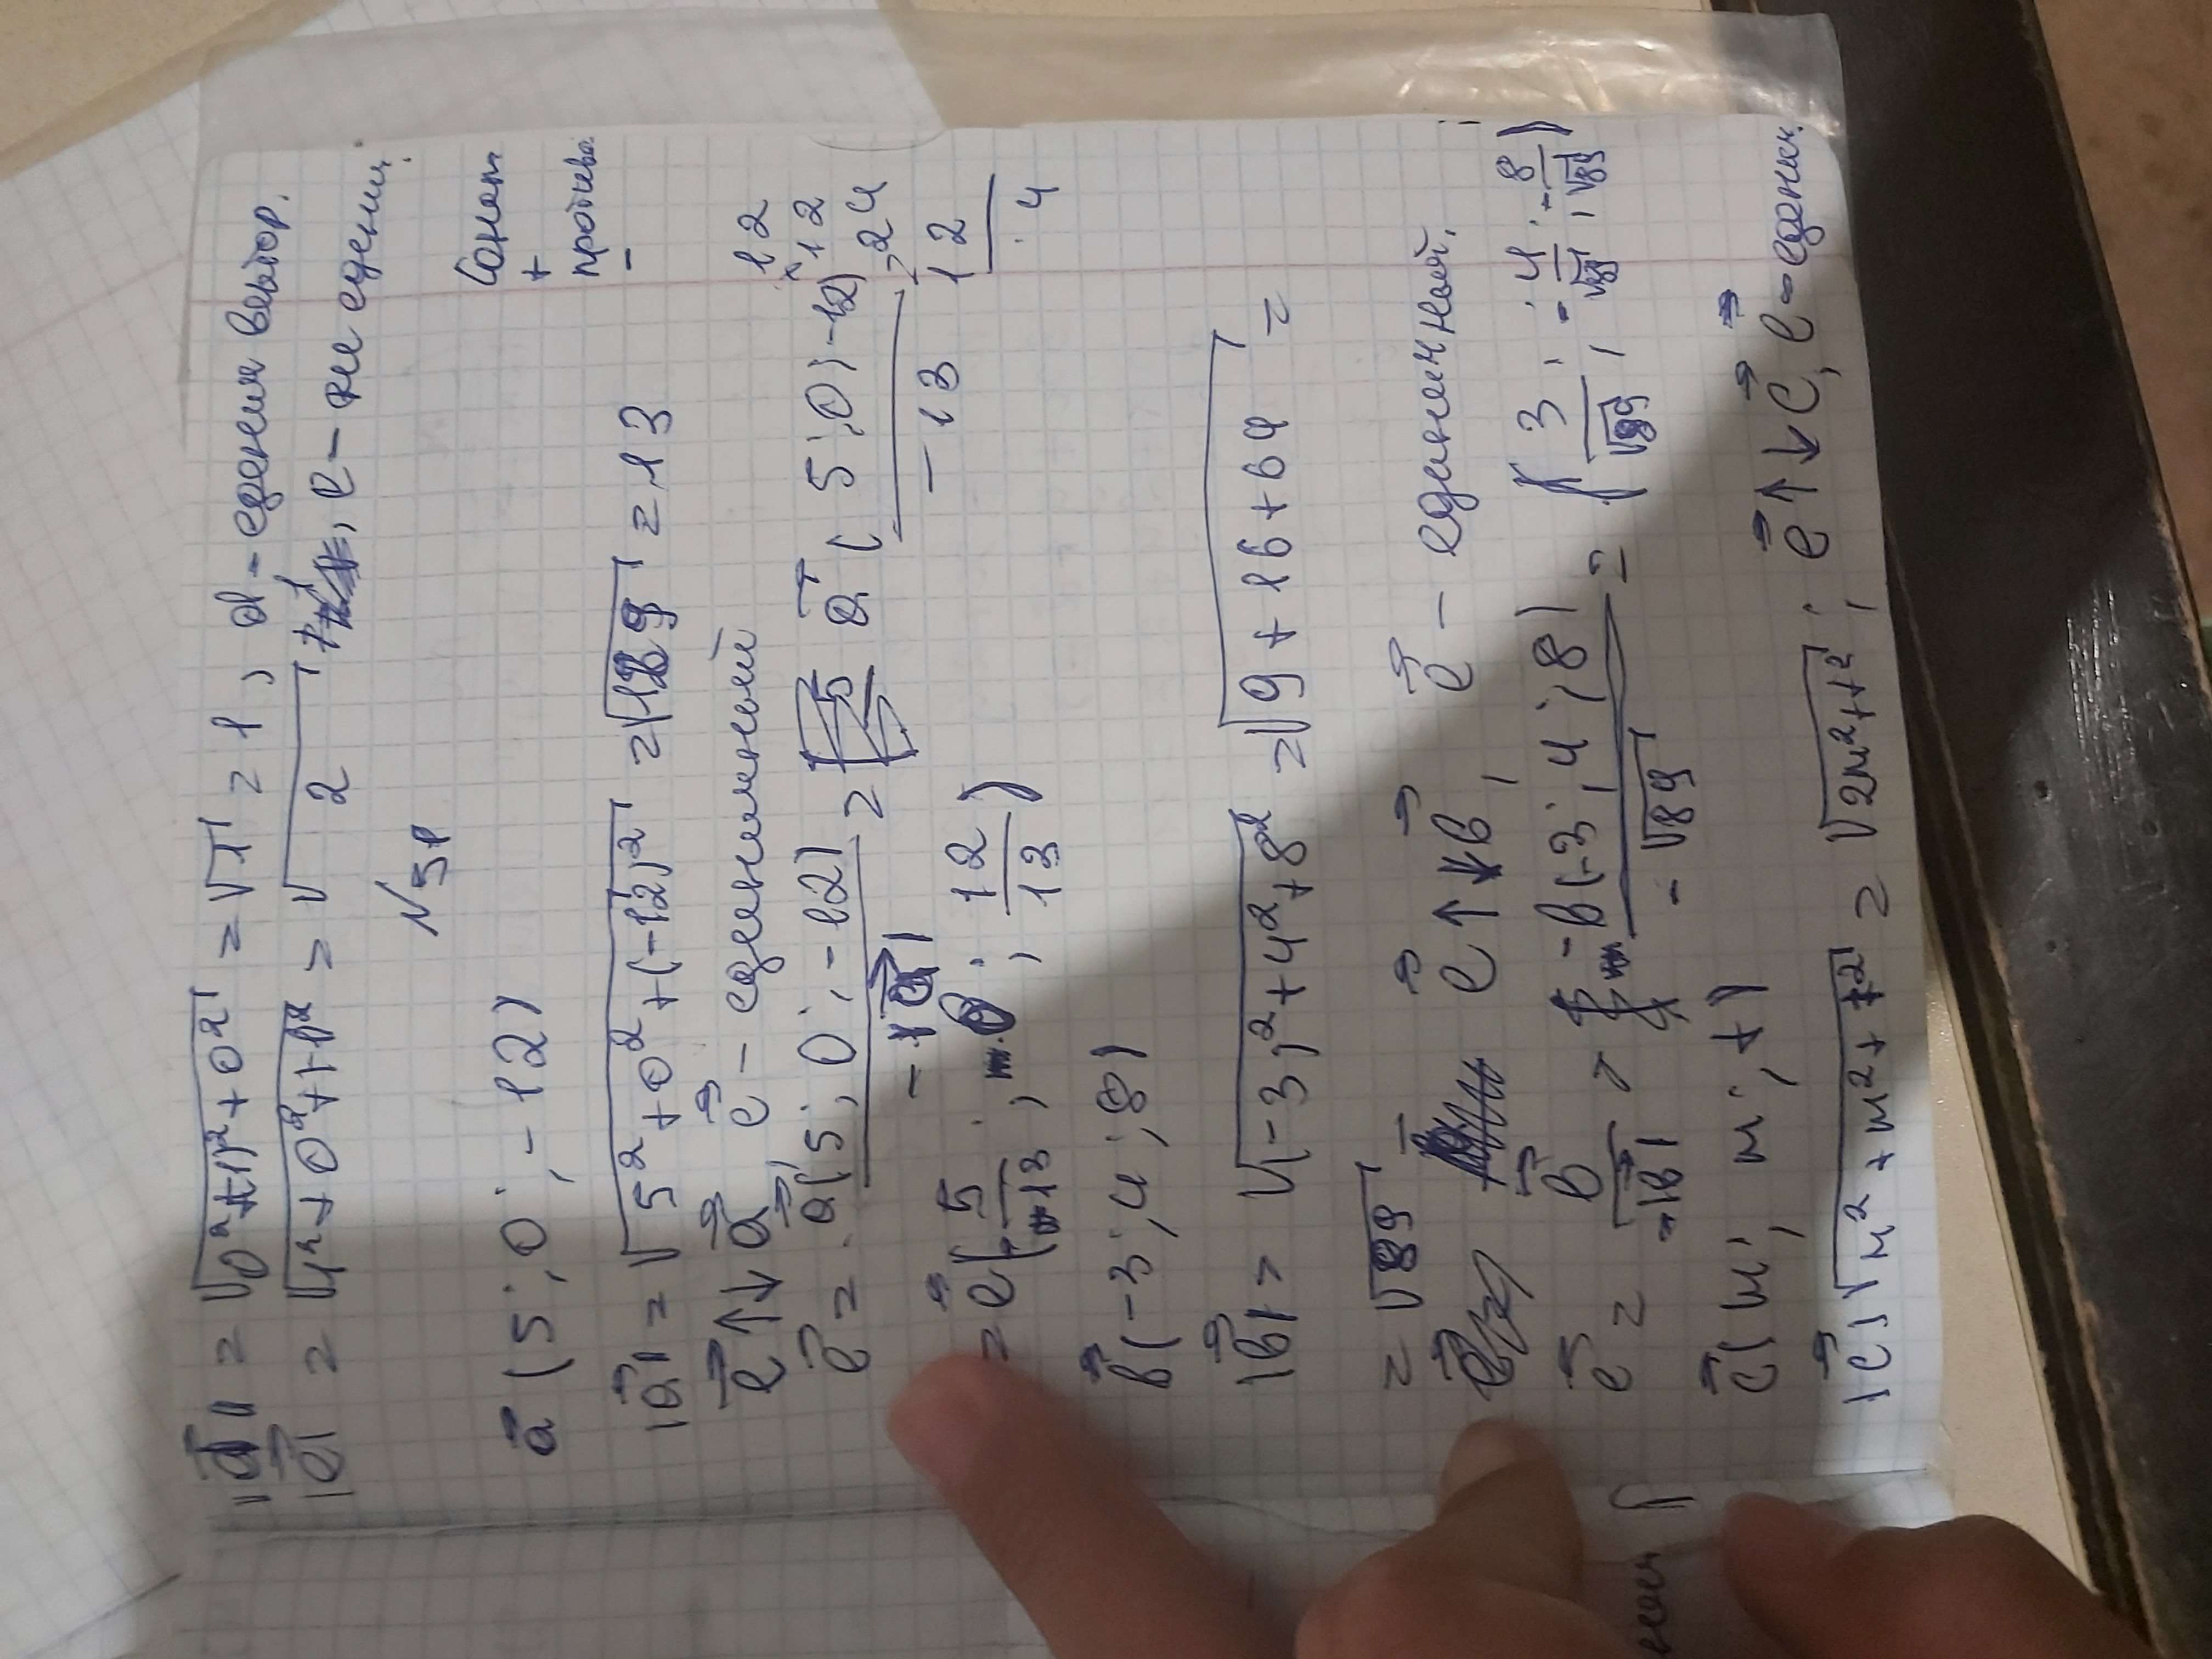 |d⃗| = √(0²+(-1)²+0²) = √1 = 1, d - единич вектор.
|e⃗| = √(1²+0²+1²) = √2, e - не единич.
N51
Сонап
+
противо.
-
a⃗ (5; 0; -12)
|a⃗| = √(5²+0²+(-12)²) = √169 = 13
e⃗ ↑↓ a⃗ e⃗ - единичный
12
×12
24
12
4
e⃗ = a⃗(5; 0; -12) / -|a⃗| = a⃗(5; 0; -12) / -13
= e⃗(-5/13; 0; 12/13)
b⃗(-3; 4; 8)
|b⃗| = √((-3)²+4²+8²) = √(9+16+64) =
= √89
e⃗ ↑↓ b⃗, e⃗ - единичный.
e⃗ = b⃗ / -|b⃗| = b(-3; 4; 8) / -√89 = (3/√89; -4/√89; -8/√89)
c⃗(m; m; t)
|c⃗| = √(m²+m²+t²) = √(2m²+t²); e⃗ ↑↓ c⃗, e⃗ - единич.